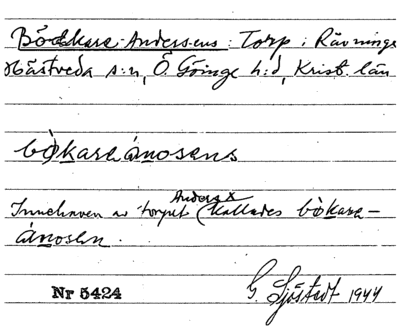 Bödkare-Anders-ens: Torp i Rävninge
Hästveda s:n, Ö. Göinge h:d, Krist. län
bò̀kareánosens
Innehaven av torpet (Anders x kallades bòkare-
ánosen.
Nr 5424
G. Sjöstedt 1944